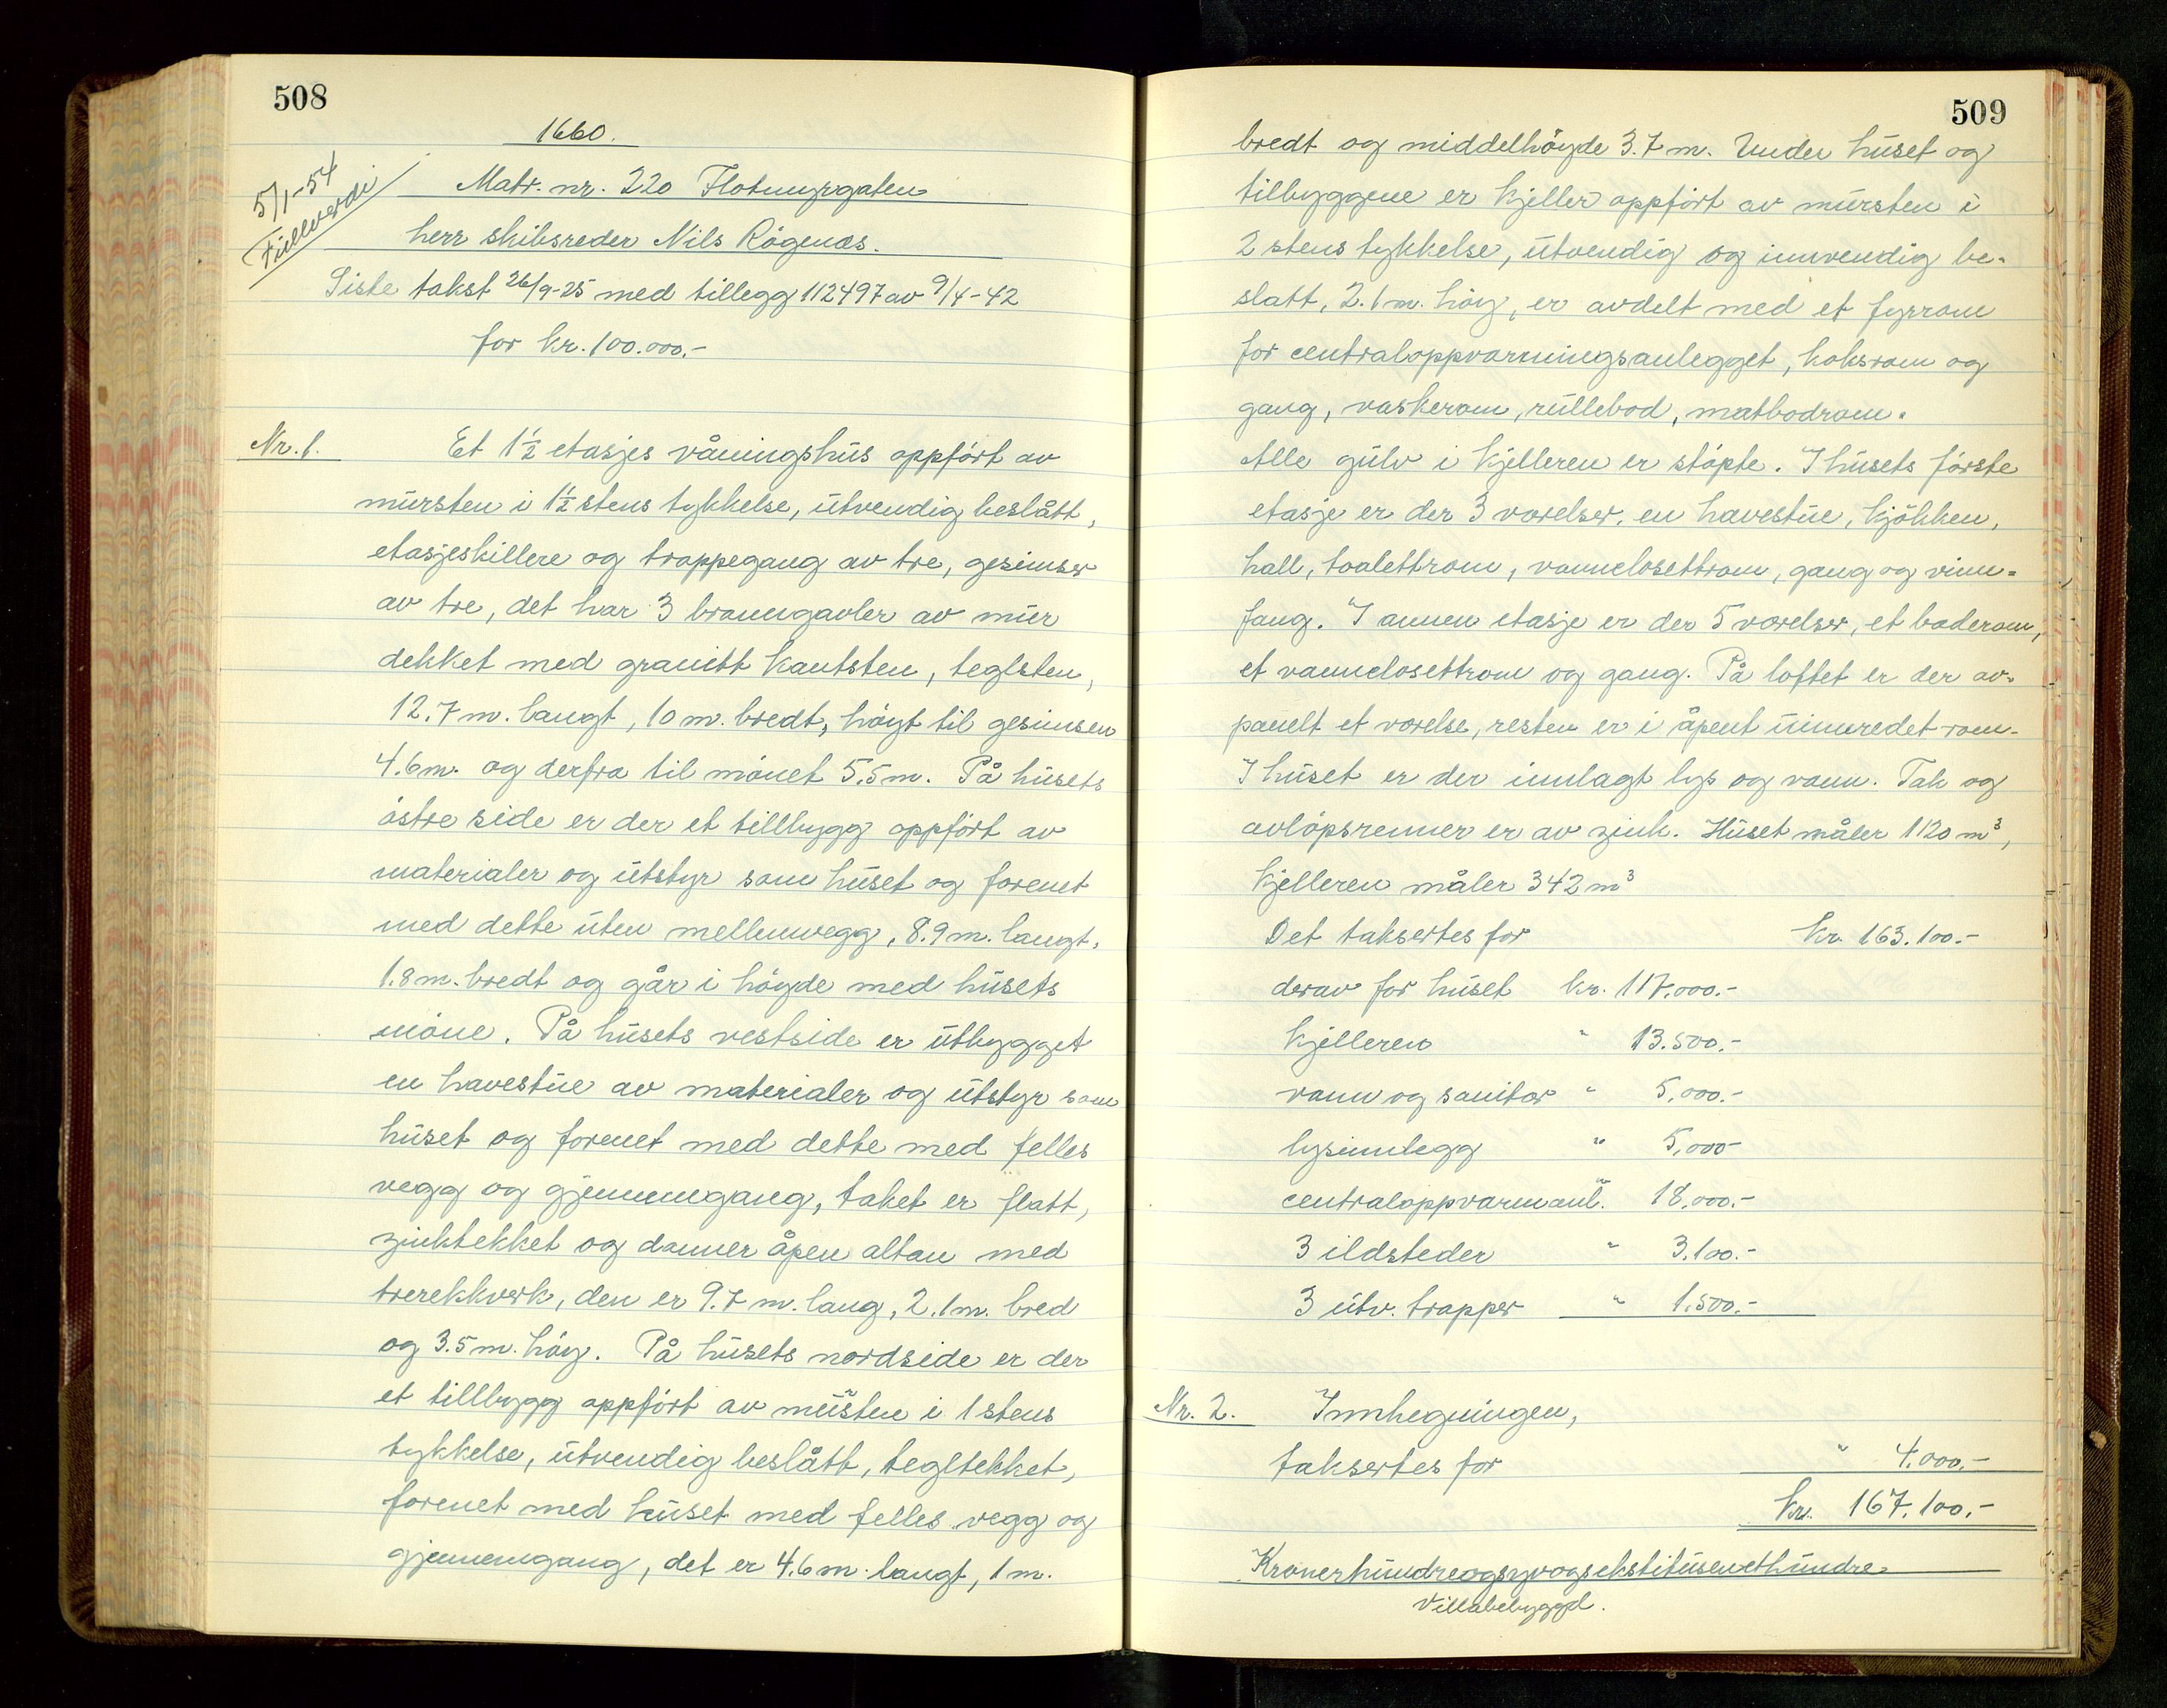 508
1660.
5/1-54
Fullverdi
Matr. nr. 220 Flotmyrgaten
herr skibsreder Nils Rögenæs.
Siste takst 26/9-25 med tillegg 112497 av 9/4-42
for kr. 100.000.-
Nr. 1. Et 1½ etasjes våningshus oppført av
mursten i 1½ stens tykkelse, utvendig beslått,
etasjeskillere og trappegang av tre, gesimser
av tre, det har 3 branngavler av mur
dekket med granitt kantsten, teglsten,
12.7 m. langt, 10 m. bredt, höyt til gesimsen
4.6 m. og derfra til mönet 5.5 m. På husets
östre side er der et tillbygg oppfört av
materialer og utstyr som huset og forenet
med dette uten mellemvegg, 8.9 m. langt,
1.8 m. bredt og går i höyde med husets
möne. På husets vestside er utbygget
en havestue av materialer og utstyr som
huset og forenet med dette med felles
vegg og gjennemgang, taket er flatt,
zinktekket og danner åpen altan med
trerekkverk, den er 9.7 m. lang, 2.1 m. bred
og 3.5 m. höy. På husets nordside er der
et tillbygg oppfört av mursten i 1 stens
tykkelse, utvendig beslått, tegltekket,
forenet med huset med felles vegg og
gjennemgang, det er 4.6 m. langt, 1 m.
509
bredt og middelhöyde 3.7 m. Under huset og
tilbyggene er kjeller oppfört av mursten i
2 stens tykkelse, utvendig og innvendig be-
slatt, 2.1 m. höy, er avdelt med et fyrrom
for centraloppvarmningsanlegget, koksrom og
gang, vaskerom, rullebod, matbodrom.
Alle gulv i kjelleren er stöpte. I husets förste
etasje er der 3 værelser, en havestue, kjökken,
hall, toalettrom, vannclosettrom, gang og vinn-
fang. I annen etasje er der 5 værelser, et baderom,
et vannclosettrom og gang. På loftet er der av-
panelt et værelse, resten er i åpent uinnredet rom.
I huset er der innlagt lys og vann. Tak og
avlöpsrenner er av zink. Huset måler 1120 m³,
kjelleren måler 342 m³
Det taksertes for kr. 163.100.-
derav for huset kr. 117.000.-
kjelleren " 13.500.-
vann og sanitær " 5.000.-
lysinnlegg " 5.000-
centraloppvarm anl. " 18.000.-
3 ildsteder " 3.100.-
3 utv. trapper " 1.500.-
Nr. 2. Innhegningen,
taksertes for " 4.000.-
kr. 167.100.-
Kronerhundreogsyvogsekstitusenethundre
Villabebyggd.